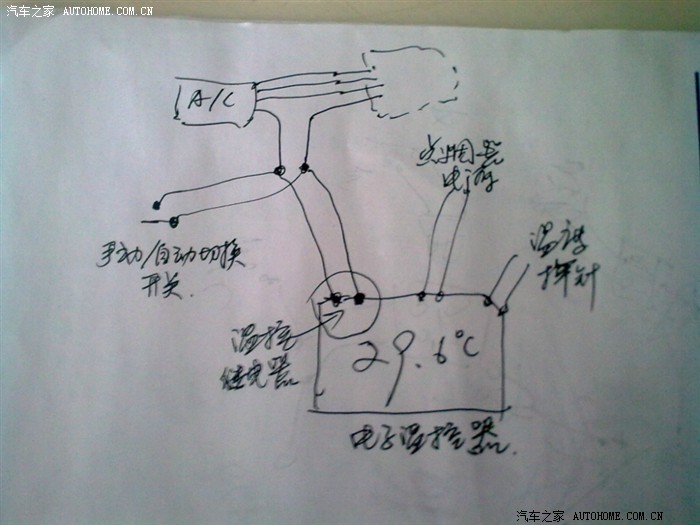 汽车之家 AUTOHOME.COM.CN
A/C
点烟器
电源
手动/自动切换
开关
温度
探针
温控
继电器
29.6°C
电子温控器
汽车之家 AUTOHOME.COM.CN